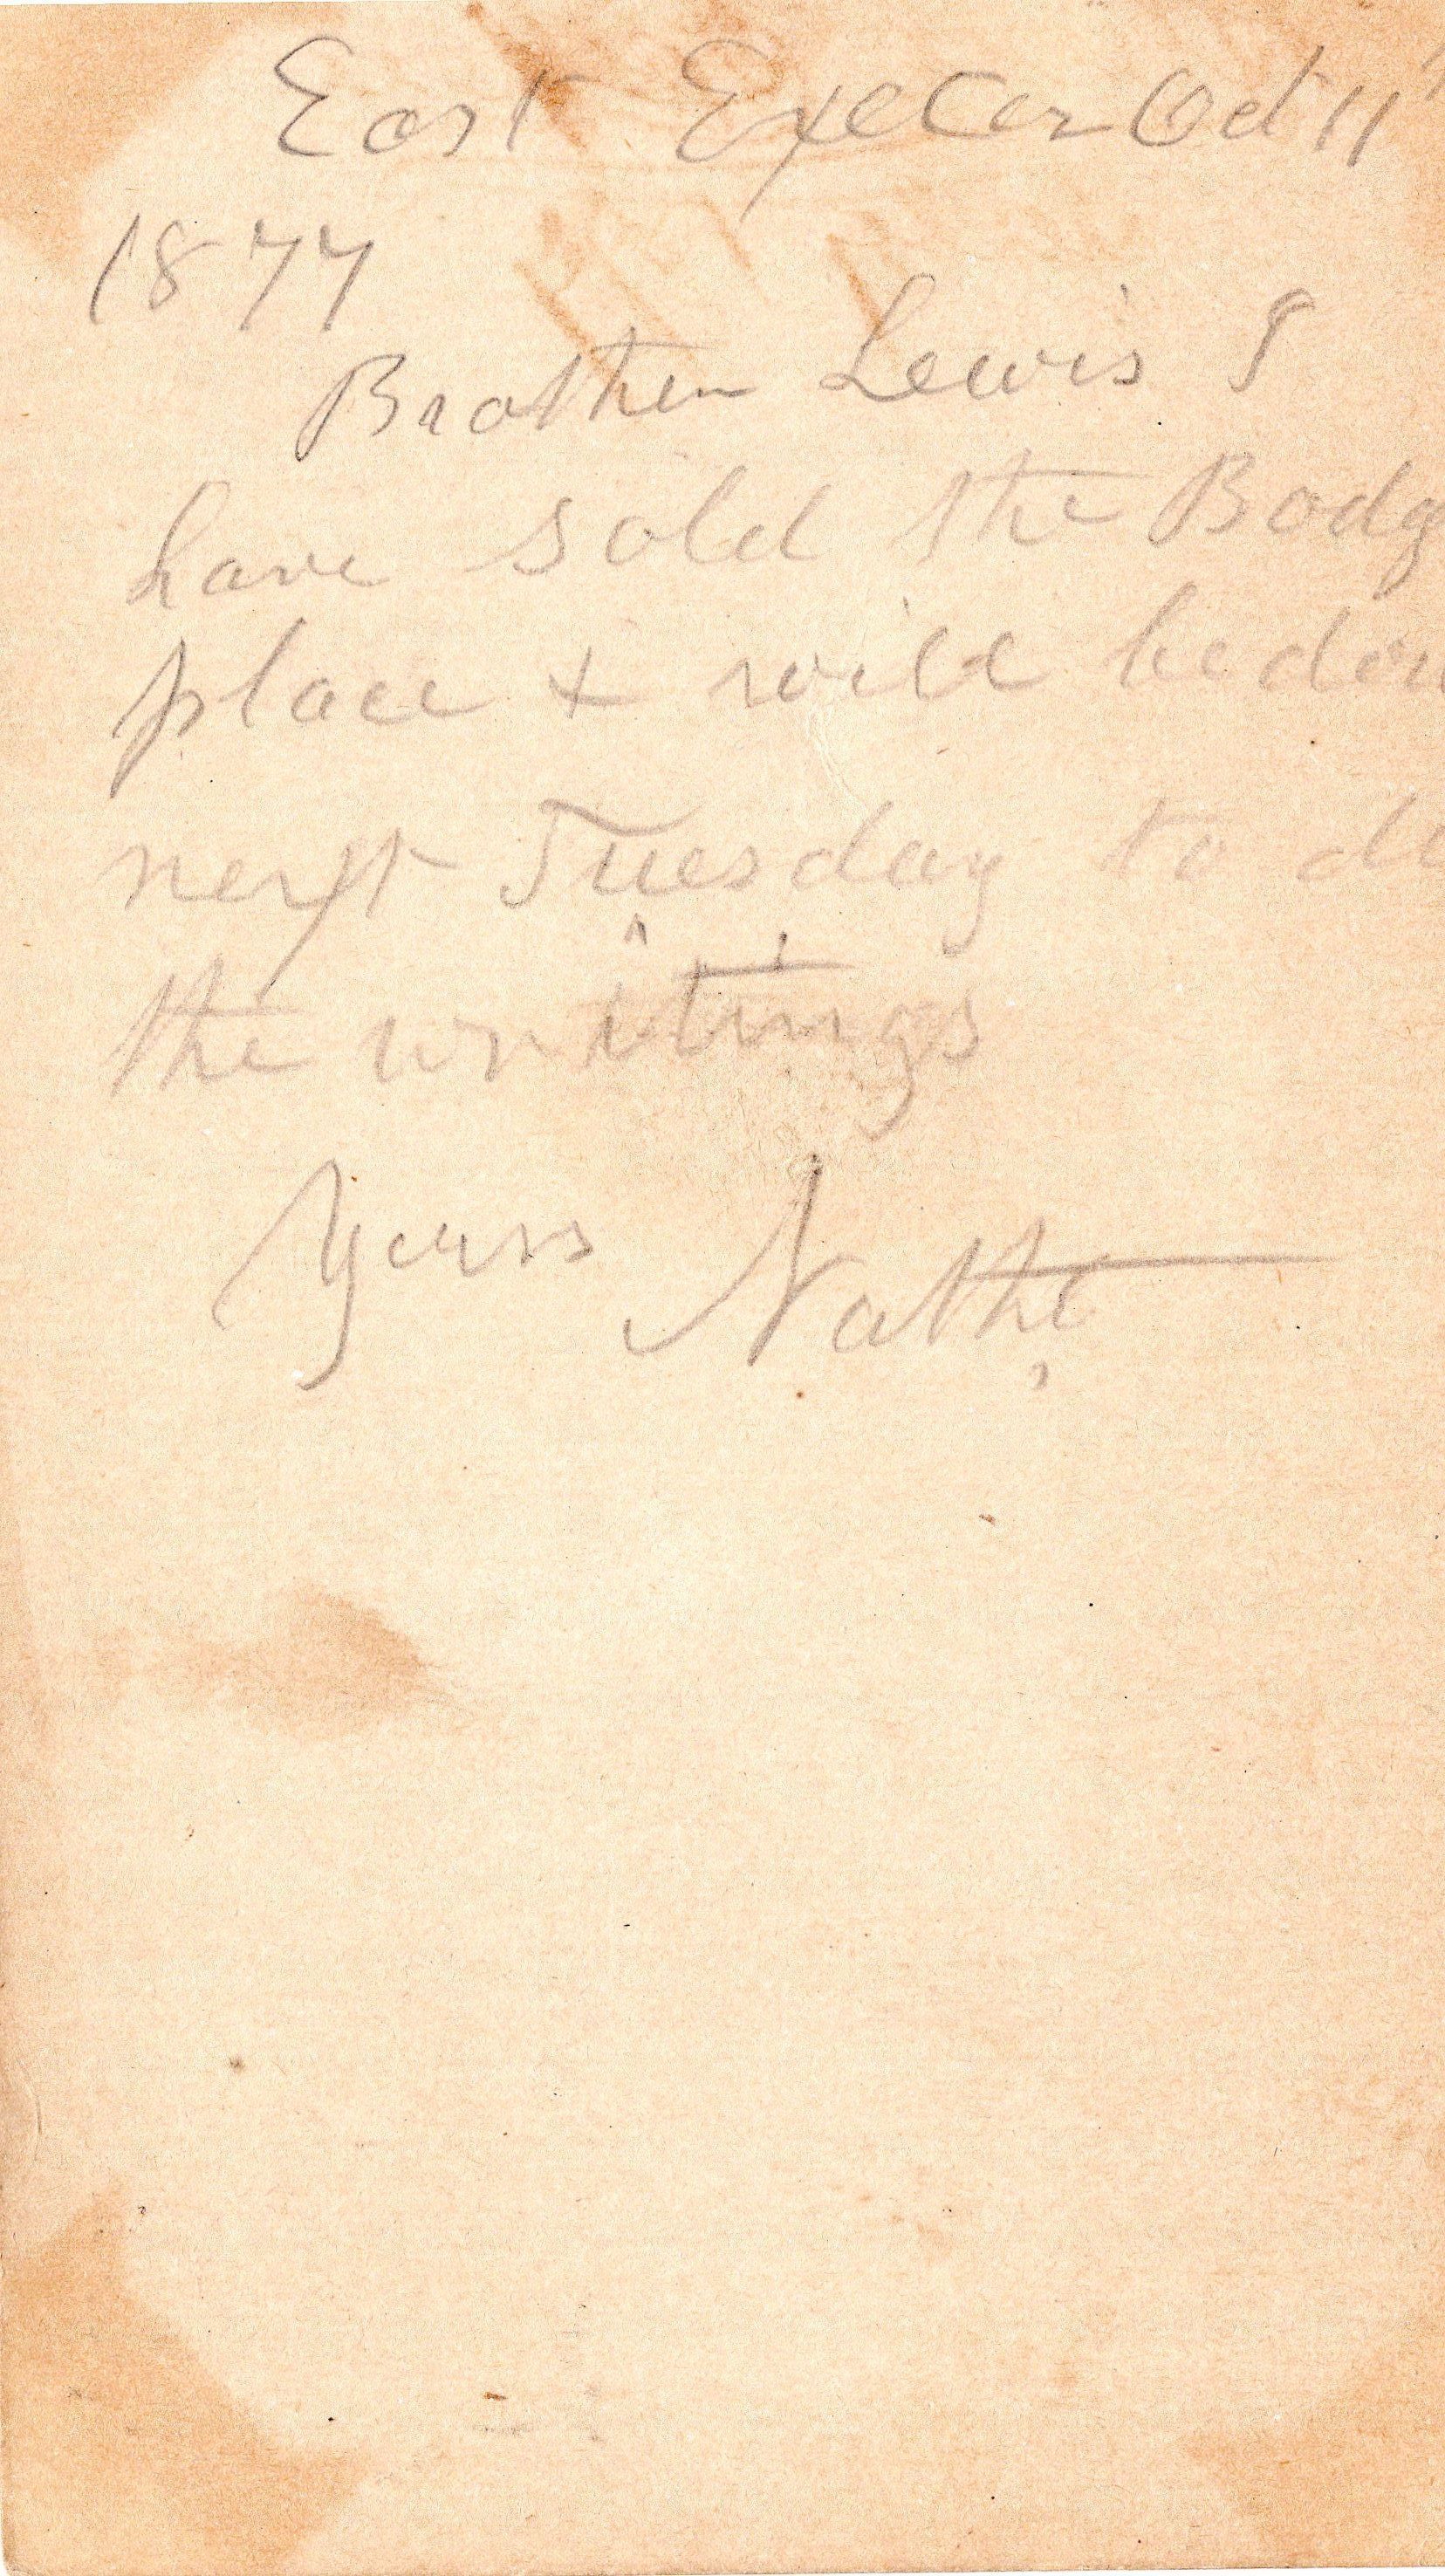 East Exeter Oct 11
1877
Brother Lewis I
have sold the Bodg
place + will be dow
next Tuesday to d
the writings
Yours Nathl